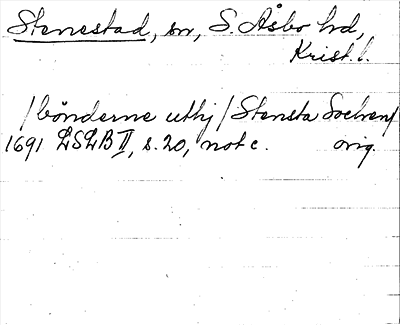 Stenestad, sn, S. Åsbo hd,
Krist. l.
/bönderne uthj/ Stensta Sochen/
1691 LSLB II, s. 20, not c. orig.